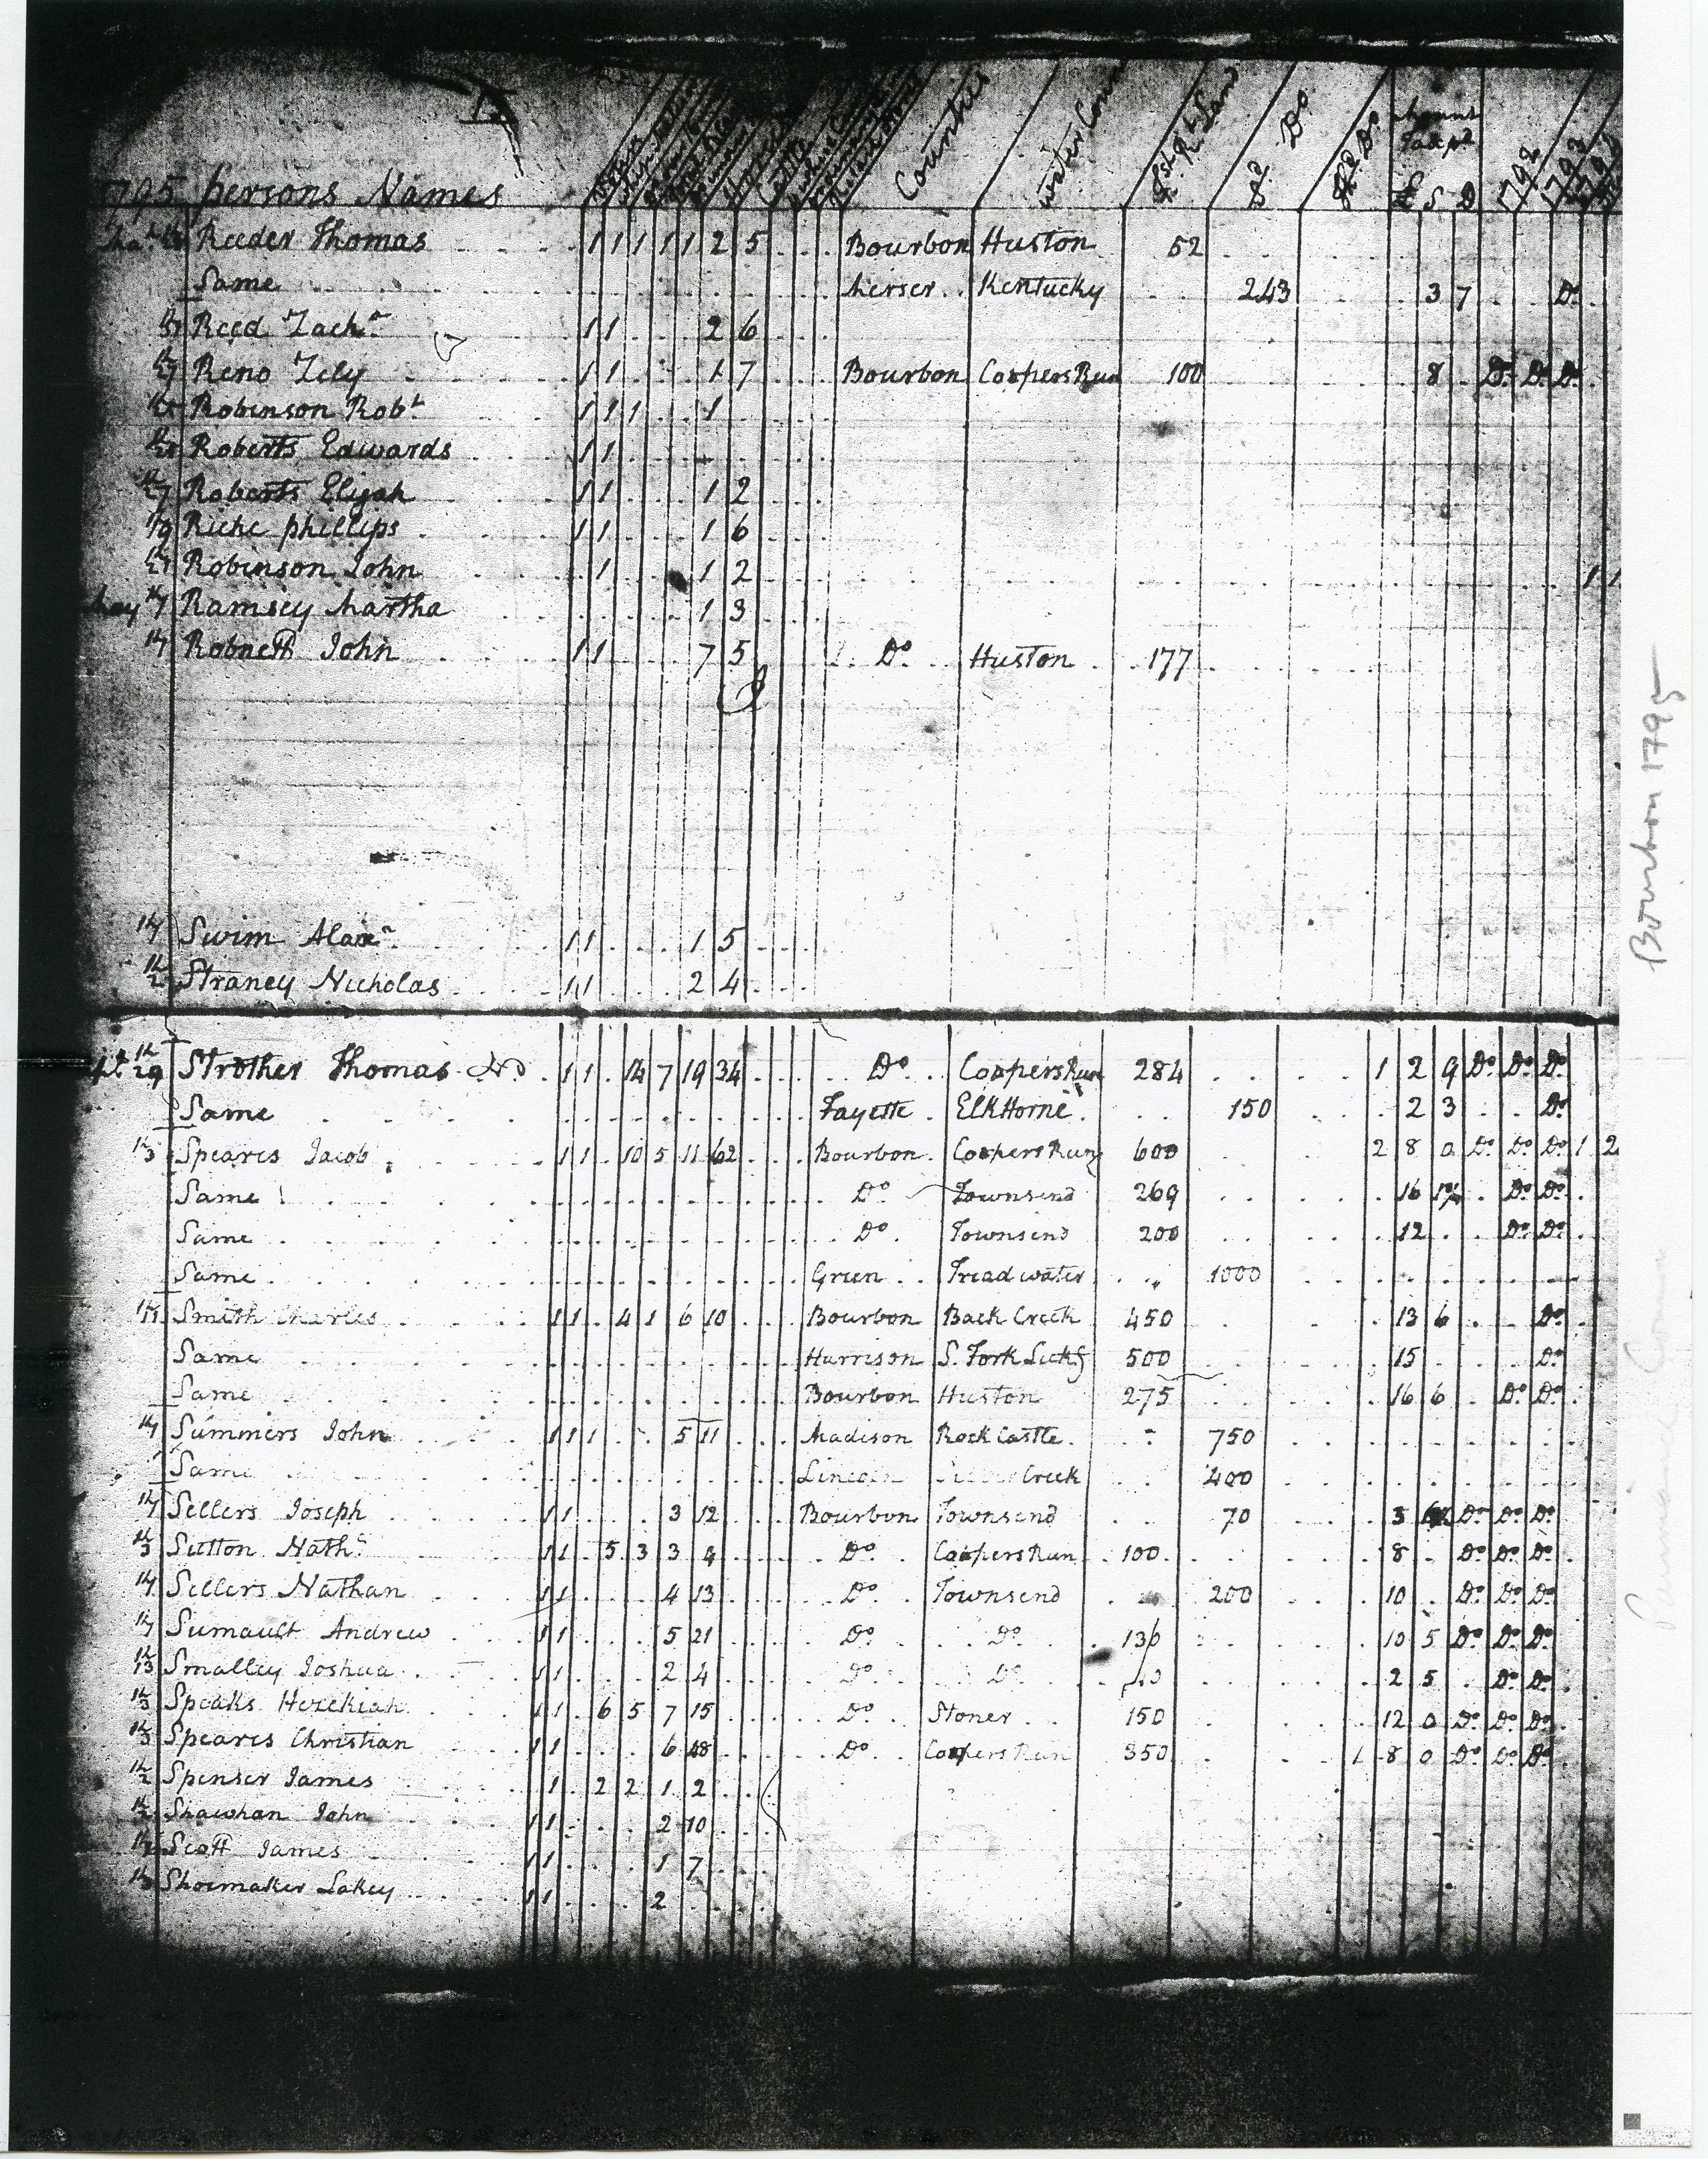 1795 persons Names Counties water Cour 1st Rt Land 2d Do 3d Do Amount Taxpd £ S D 1792 1793 1794
Reeder Thomas 1 1 1 1 1 2 5 Bourbon Huston 52
Same Merser Kentucky 243 3 7 Do
Reed Zachr 1 1 2 6
Reno Zely 1 1 1 7 Bourbon Coopers Run 100 8 Do Do Do
Robinson Robt 1 1 1 1
Roberts Edwards 1 1
Roberts Elijah 1 1 1 2
Riche phillips 1 1 1 6
Robinson John 1 1 2 1 1
May 14 Ramsey Martha 1 3
14 Robnett John 1 1 7 5 Do Huston 177
14 Swim Alaxr 1 1 1 5
Straney Nicholas 1 1 2 4
Strother Thomas 1 1 14 7 19 34 Do Coopers Run 284 1 2 9 Do Do Do
Same Fayette ElkHorne 150 2 3 Do
Spears Jacob 1 1 10 5 11 62 Bourbon Coopers Run 600 2 8 0 Do Do Do 1 2
Same Do Townsend 269 16 Do Do
Same Do Townsend 200 12 Do Do
Same Green Treadwater 1000
Smith Charles 1 1 4 1 6 10 Bourbon Back Creek 450 13 6 Do
Same Harrison S. Fork Lickg 500 15 Do
Same Bourbon Huston 275 16 6 Do Do
14 Summers John 1 1 1 5 11 Madison Rock Castle 750
Same Lincoln Creek 400
14 Sellers Joseph 1 1 3 12 Bourbon Townsend 70 3 Do Do Do
Sutton Nathl 1 1 5 3 3 9 Do Coopers Run 100 8 Do Do Do
14 Sellers Nathan 1 1 4 13 Do Townsend 200 10 Do Do Do
14 Sumault Andrew 1 1 5 21 Do Do 130 10 5 Do Do Do
Smalley Joshua 1 1 2 4 Do Do 2 5 Do Do
Speaks Hezekiah 1 1 6 5 7 15 Do Stoner 150 12 0 Do Do Do
Spears Christian 1 1 6 48 Do Coopers Run 350 1 8 0 Do Do Do
Spenser James 1 2 2 1 2
Shawhan John 1 1 2 10
Scott James 1 1 1 7
Shoemaker Lakey 1 1 2
Bourbon 1795